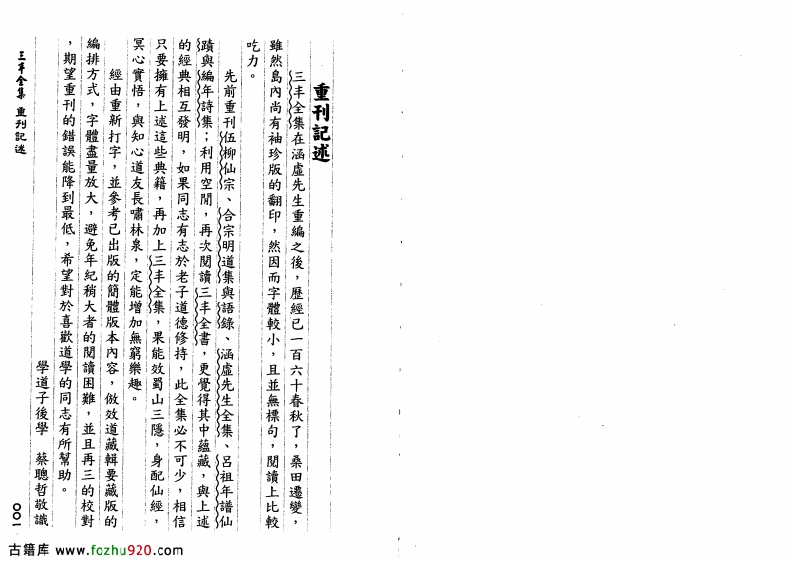 重刊記述
三丰全集在涵虛先生重編之後，歷經已一百六十春秋了，桑田遷變，
雖然島內尚有袖珍版的翻印，然因而字體較小，且並無標句，閱讀上比較
吃力。
先前重刊伍柳仙宗、合宗明道集與語錄、涵虛先生全集、呂祖年譜仙
蹟與編年詩集；利用空閒，再次閱讀三丰全書，更覺得其中蘊藏，與上述
的經典相互發明，如果同志有志於老子道德修持，此全集必不可少，相信
只要擁有上述這些典籍，再加上三丰全集，果能效蜀山三隱，身配仙經，
冥心實悟，與知心道友長嘯林泉，定能增加無窮樂趣。
經由重新打字，並參考已出版的簡體版本內容，倣效道藏輯要藏版的
編排方式，字體盡量放大，避免年紀稍大者的閱讀困難，並且再三的校對
，期望重刊的錯誤能降到最低，希望對於喜歡道學的同志有所幫助。
學道子後學　蔡聰哲敬識
三丰全集　重刊記述
００１
古籍库 www.fozhu920.com